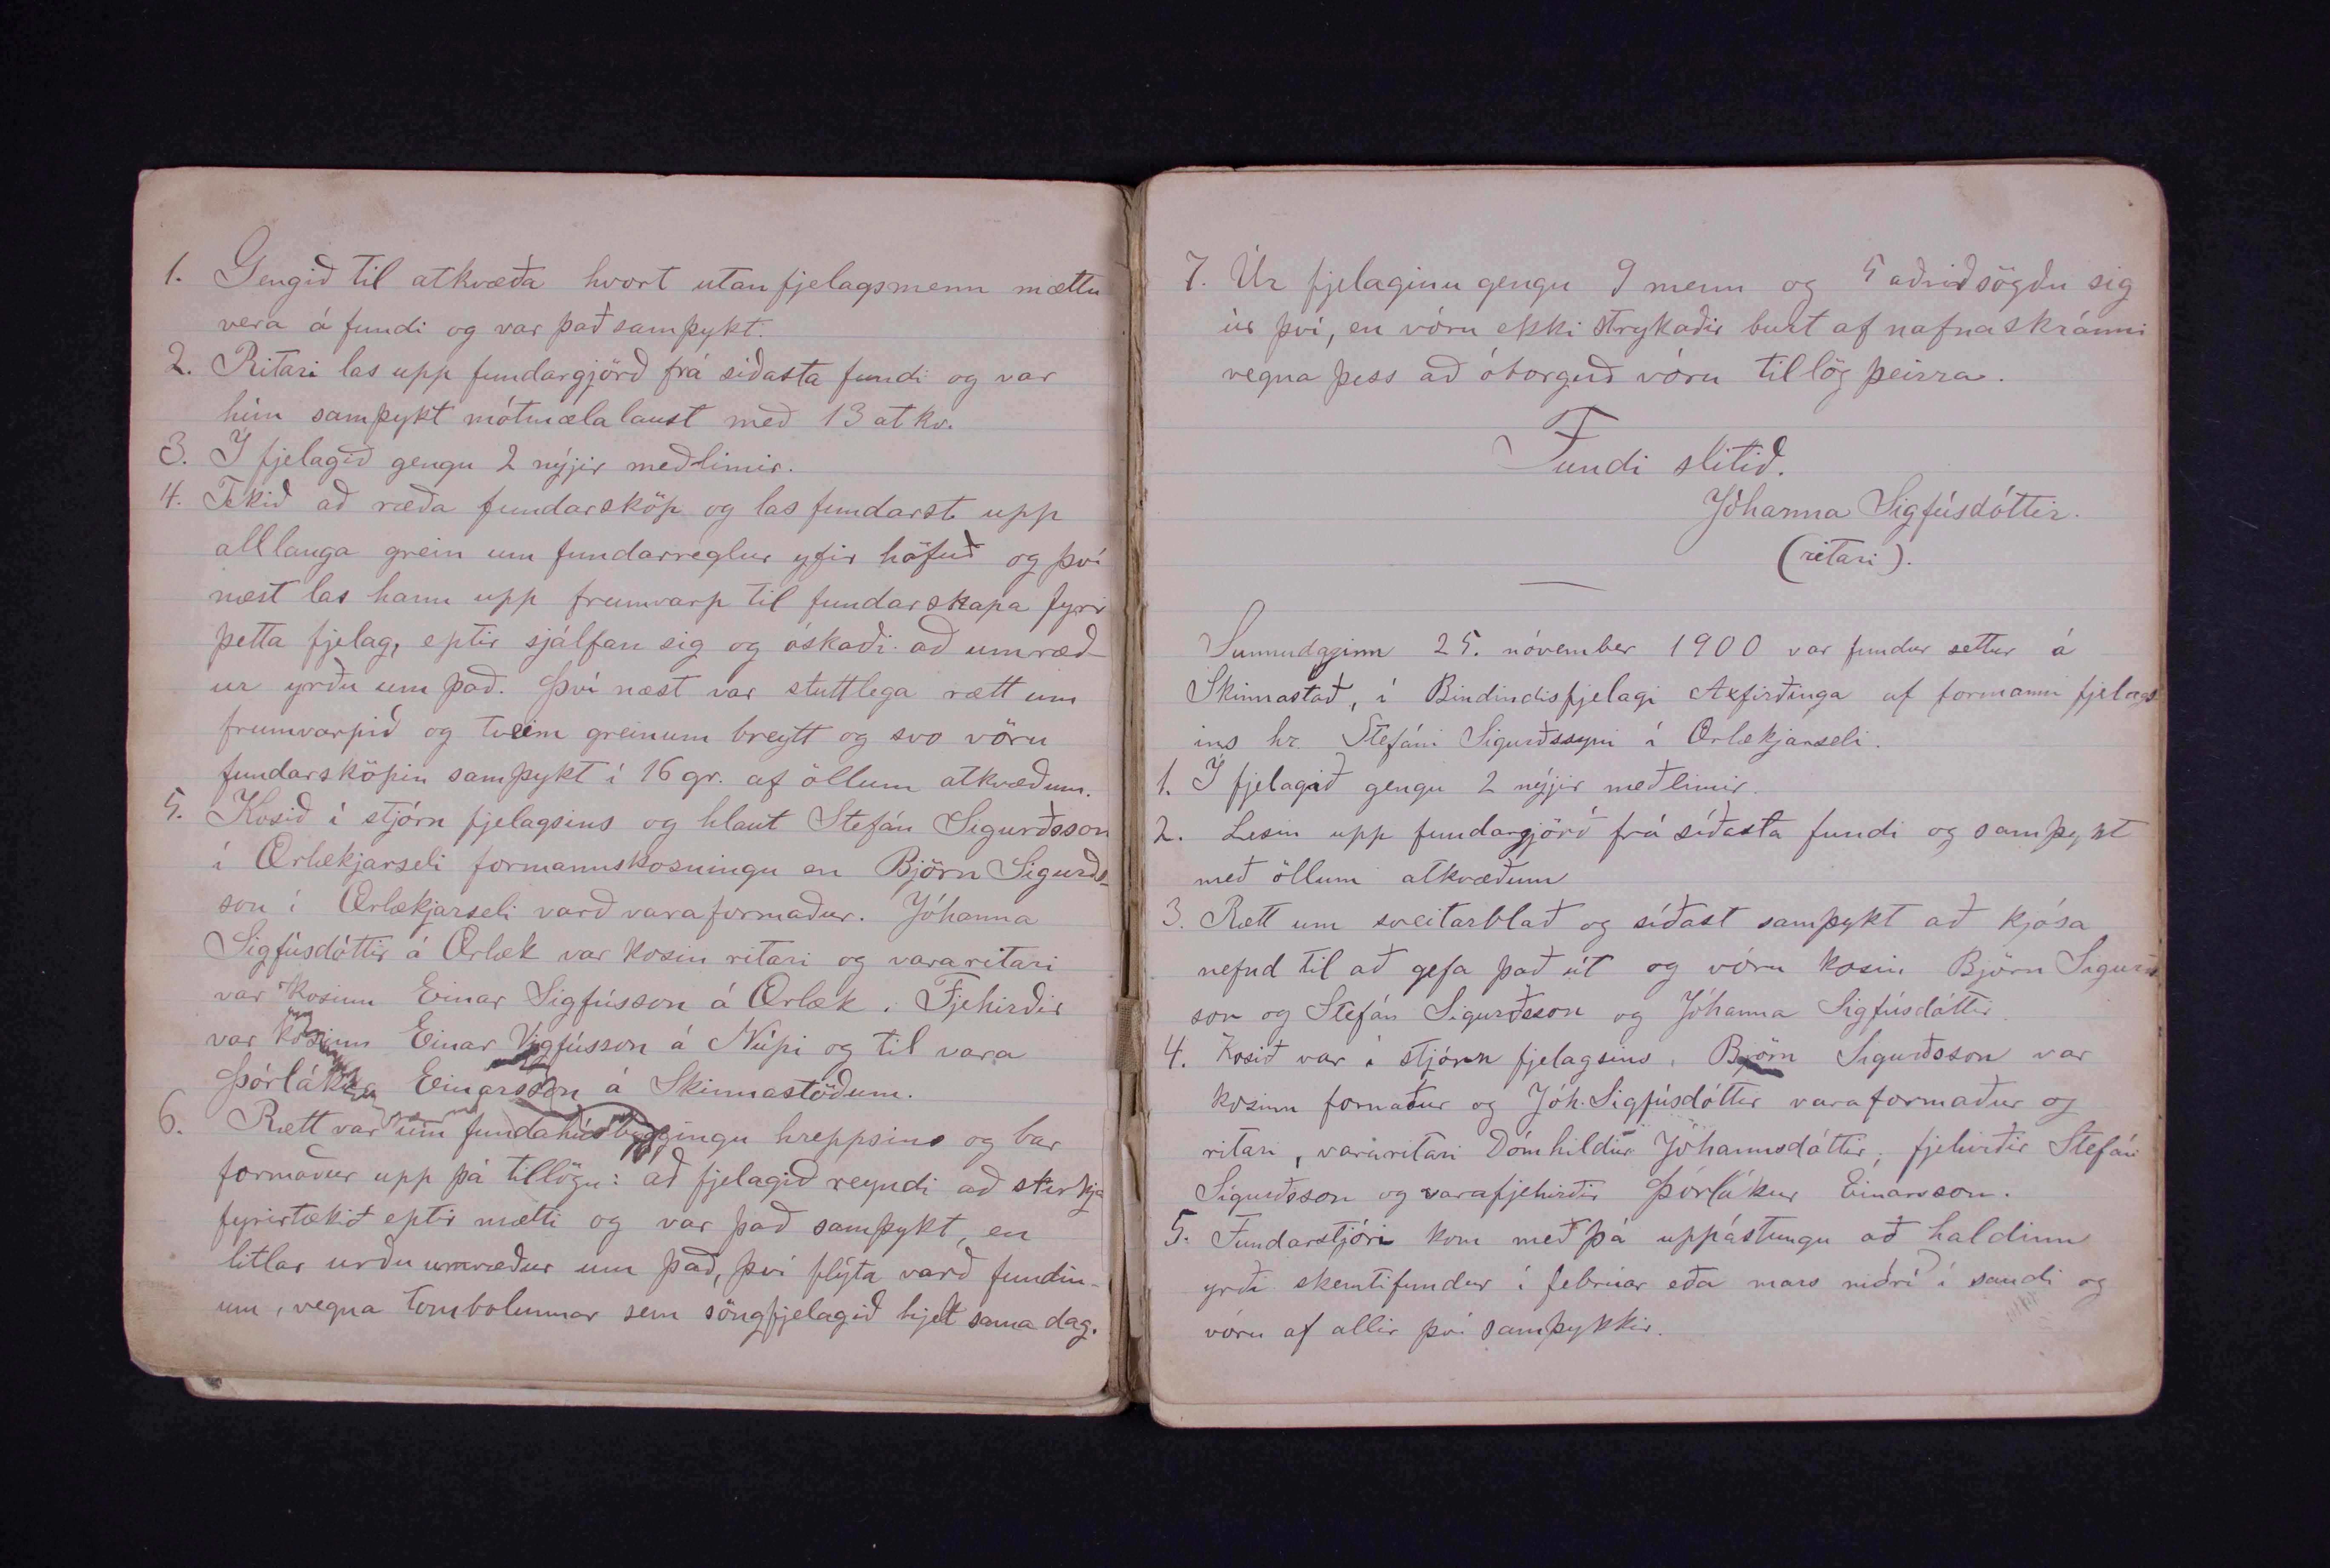 1. Gengið til atkvæða hvort utanfjelagsmenn mættu
vera á fundi og var það samþykt.
2. Ritari las upp fundargjörð frá síðasta fundi og var
hún samþykt mótmælalaust með 13 atkv.
3. Í fjelagið gengu 2 nýjir meðlimir.
4. Tekið að ræða fundarsköp og las fundarst. upp
alllanga grein um fundarreglur yfir höfuð og því
næst las hann upp frumvarp til fundarskapa fyrir
þetta fjelag, eptir sjálfan sig og óskaði að umræð-
ur yrðu um það. Því næst var stuttlega rætt um
frumvarpið og tveim greinum breytt og svo vóru
fundarsköpin samþykt í 16 gr. af öllum atkvæðum.
5. Kosið í stjórn fjelagsins og hlaut Stefán Sigurðsson
í Ærlækjarseli formannskosningu en Björn Sigurðs-
son í Ærlækjarseli varð varaformaður. Jóhanna
Sigfúsdóttir á Ærlæk var kosin ritari og vararitari
var kosinn Einar Sigfússon á Ærlæk. Fjehirðir
var kosinn Einar Vigfússon á Núpi og til vara
Einarsson á Skinnastöðum.
6. Rætt var um fundahúsbyggingu hreppsins og bar
formaður upp þá tillögu: að fjelagið reyndi að stirkja
fyrirtækið eptir mætti og var það samþykt, en
litlar urðu umræður um það, því flýta varð fundin-
um, vegna tombolunnar sem söngfjelagið hjelt sama dag.
7. Úr fjelaginu gengu 9 menn og 5 aðrir sögðu sig
úr því, en vóru ekki strykaðir burt af nafnaskránni
vegna þess að óborguð vóru tillög þeirra.
Fundi slitið.
Jóhanna Sigfúsdóttir.
(ritari).
Sunnudaginn 25. nóvember 1900 var fundur settur á
Skinnastað, í Bindindisfjelagi Axfirðinga af formanni fjelags-
ins hr. Stefáni Sigurðssyni í Ærlækjarseli.
1. Í fjelagið gengu 2 nýjir meðlimir.
2. Lesin upp fundargjörð frá síðasta fundi og samþykt
með öllum atkvæðum
3. Rætt um sveitarblað og síðast samþykt að kjósa
nefnd til að gefa það út og vóru kosin Björn Sigurðs
son og Stefán Sigurðsson og Jóhanna Sigfúsdóttir.
4. Kosið var í stjórn fjelagsins. Björn Sigurðsson var
kosinn formaður og Jóh. Sigfúsdóttir varaformaður og
ritari, vararitari Dómhildur Jóhannsdóttir, fjehirðir Stefán
Sigurðsson og varafjehirðir Þórlákur Einarsson.
5. Fundarstjóri kom með þá uppástungu að haldinn
yrði skemtifundur í febrúar eða mars niðrí í sandi og
vóru af allir því samþykkir.